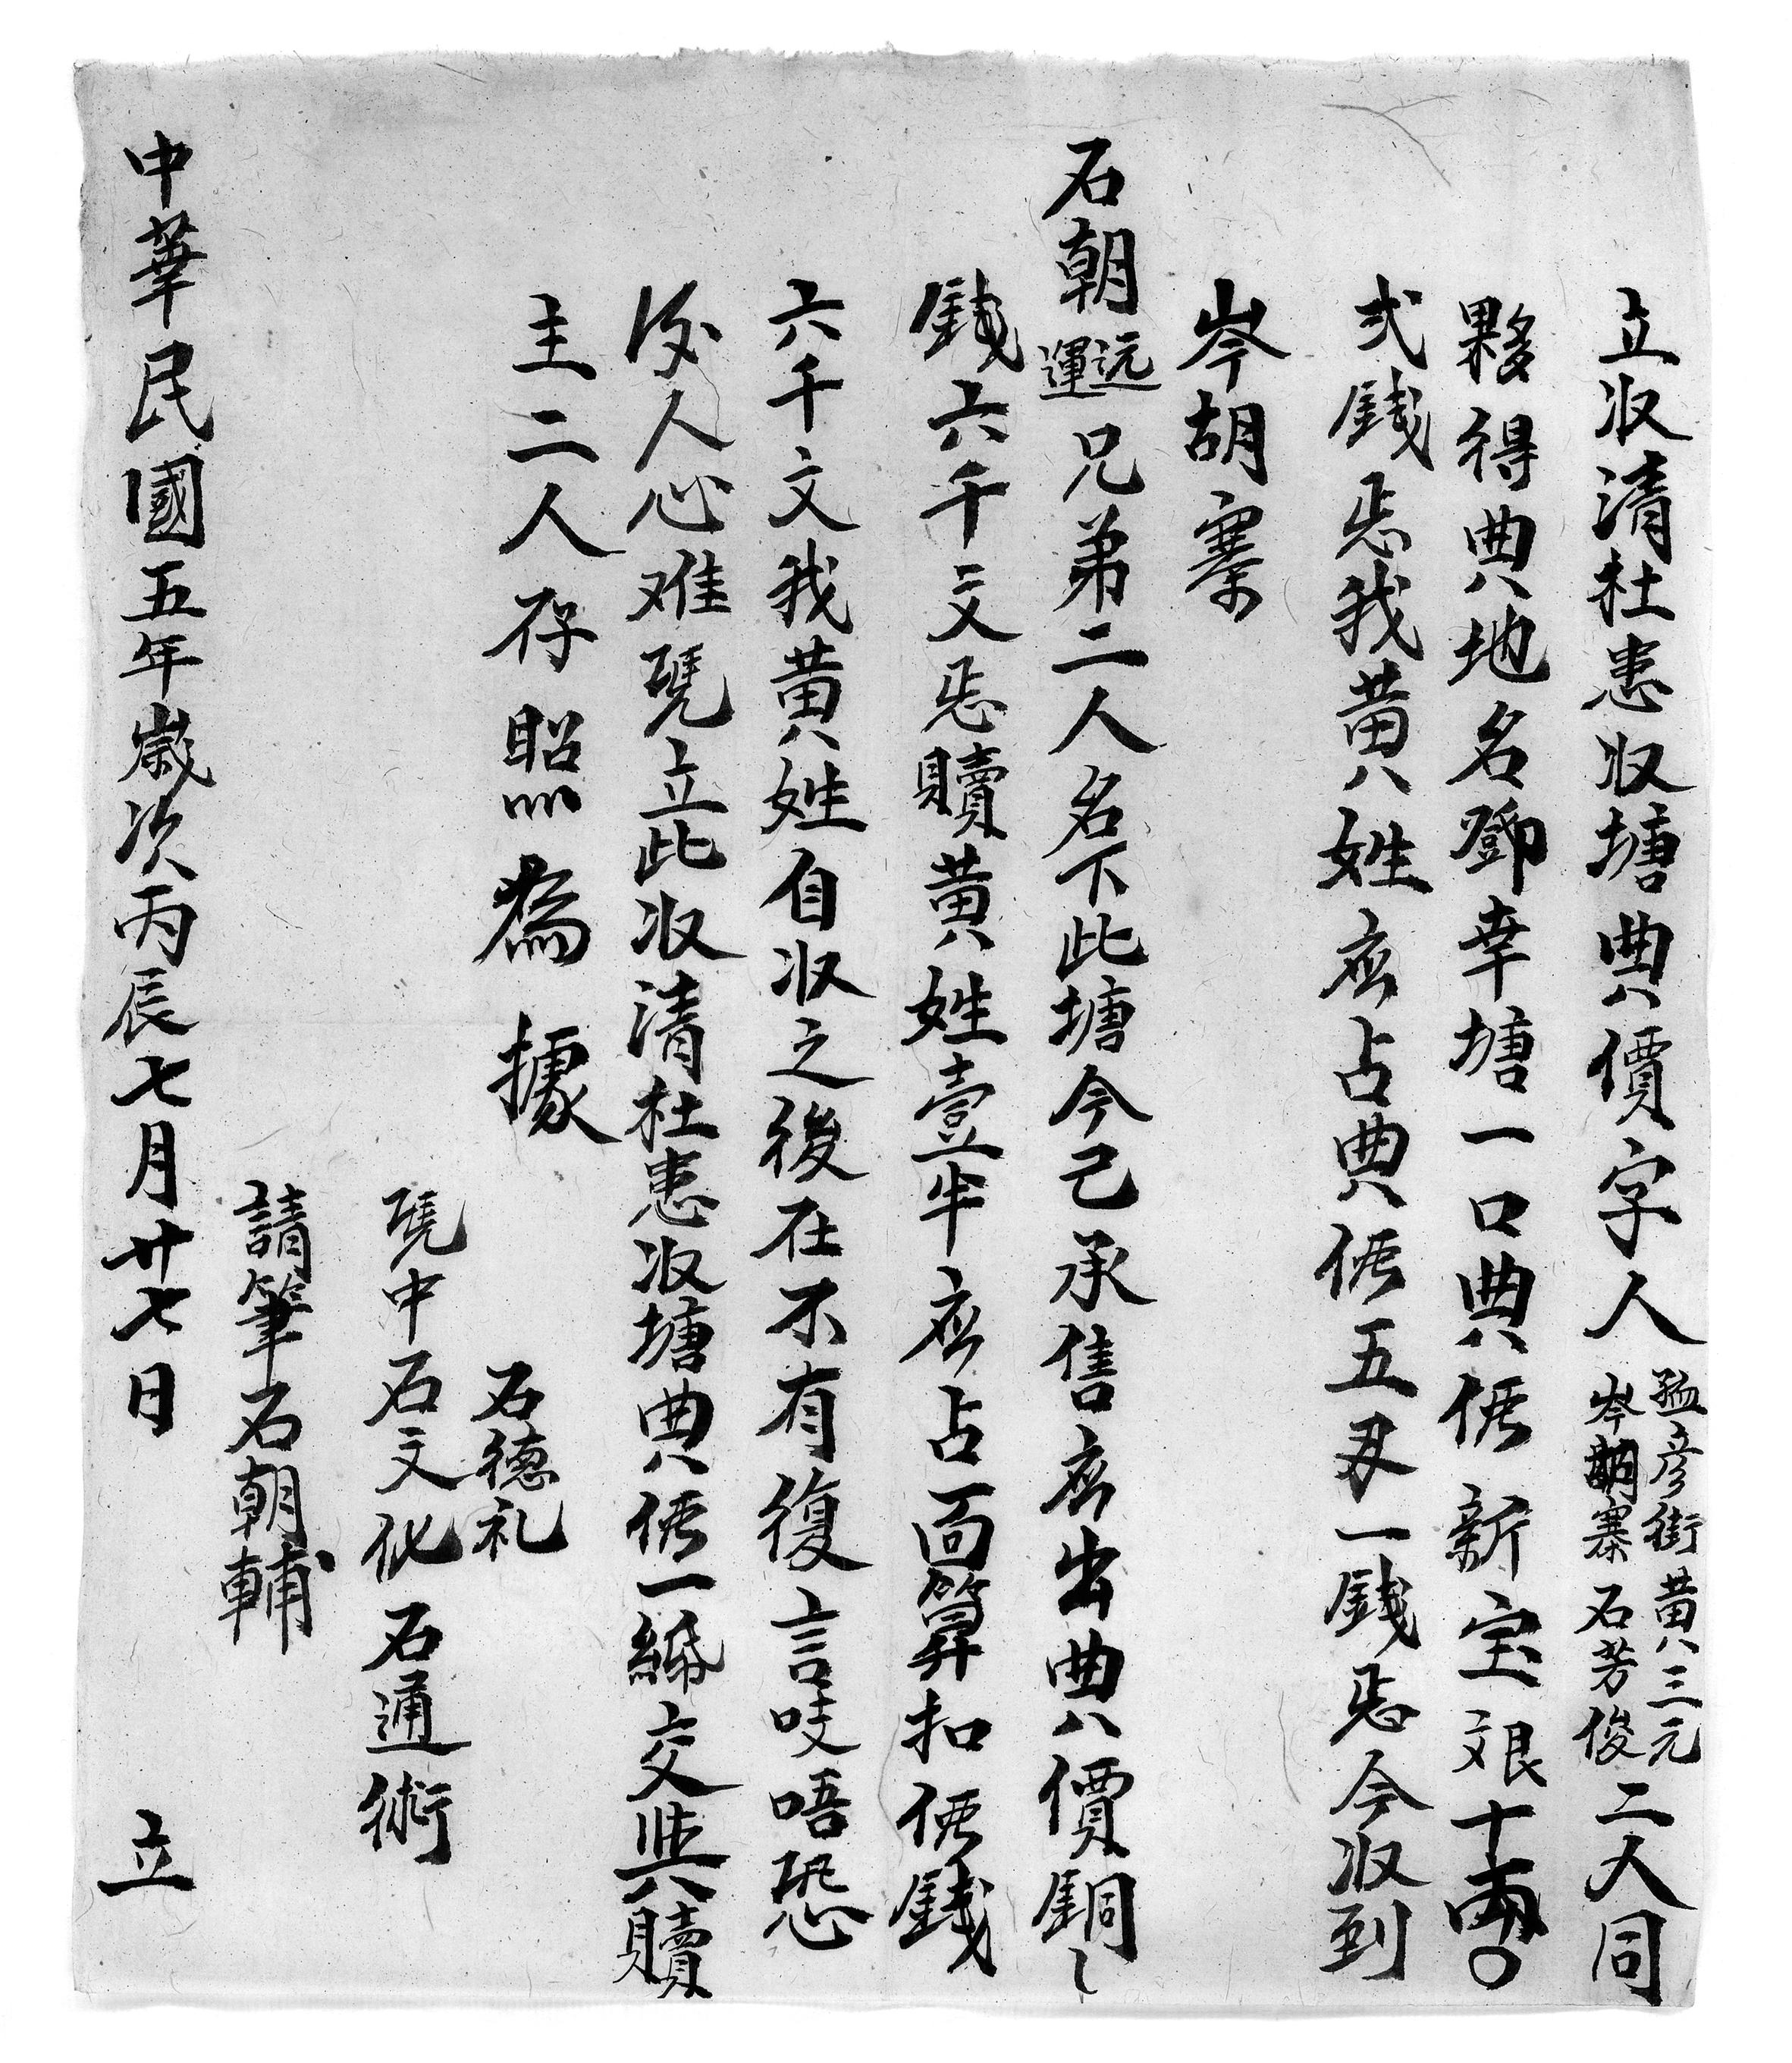 立收清杜患收塘典價字人孟彦街黄三元岑胡寨石芳俊二人同
夥得典地名鄧幸塘一口典価新宝艮十両〇
弍錢㤙我黄姓应占典価五両一錢㤙今收到
岑胡寨
石朝远運兄弟二人名下此塘今己承售应出典價銅
錢六千文㤙贖黄姓壹半应占面算扣価錢
六千文我黄姓自收之後在不有復言吱唔恐
後人心难凴立此收清杜患收塘典価一紙交與贖
主二人存照為據
石德礼
凴中石文化石通術
請筆石朝輔
中華民國五年歲次丙辰七月廿七日立